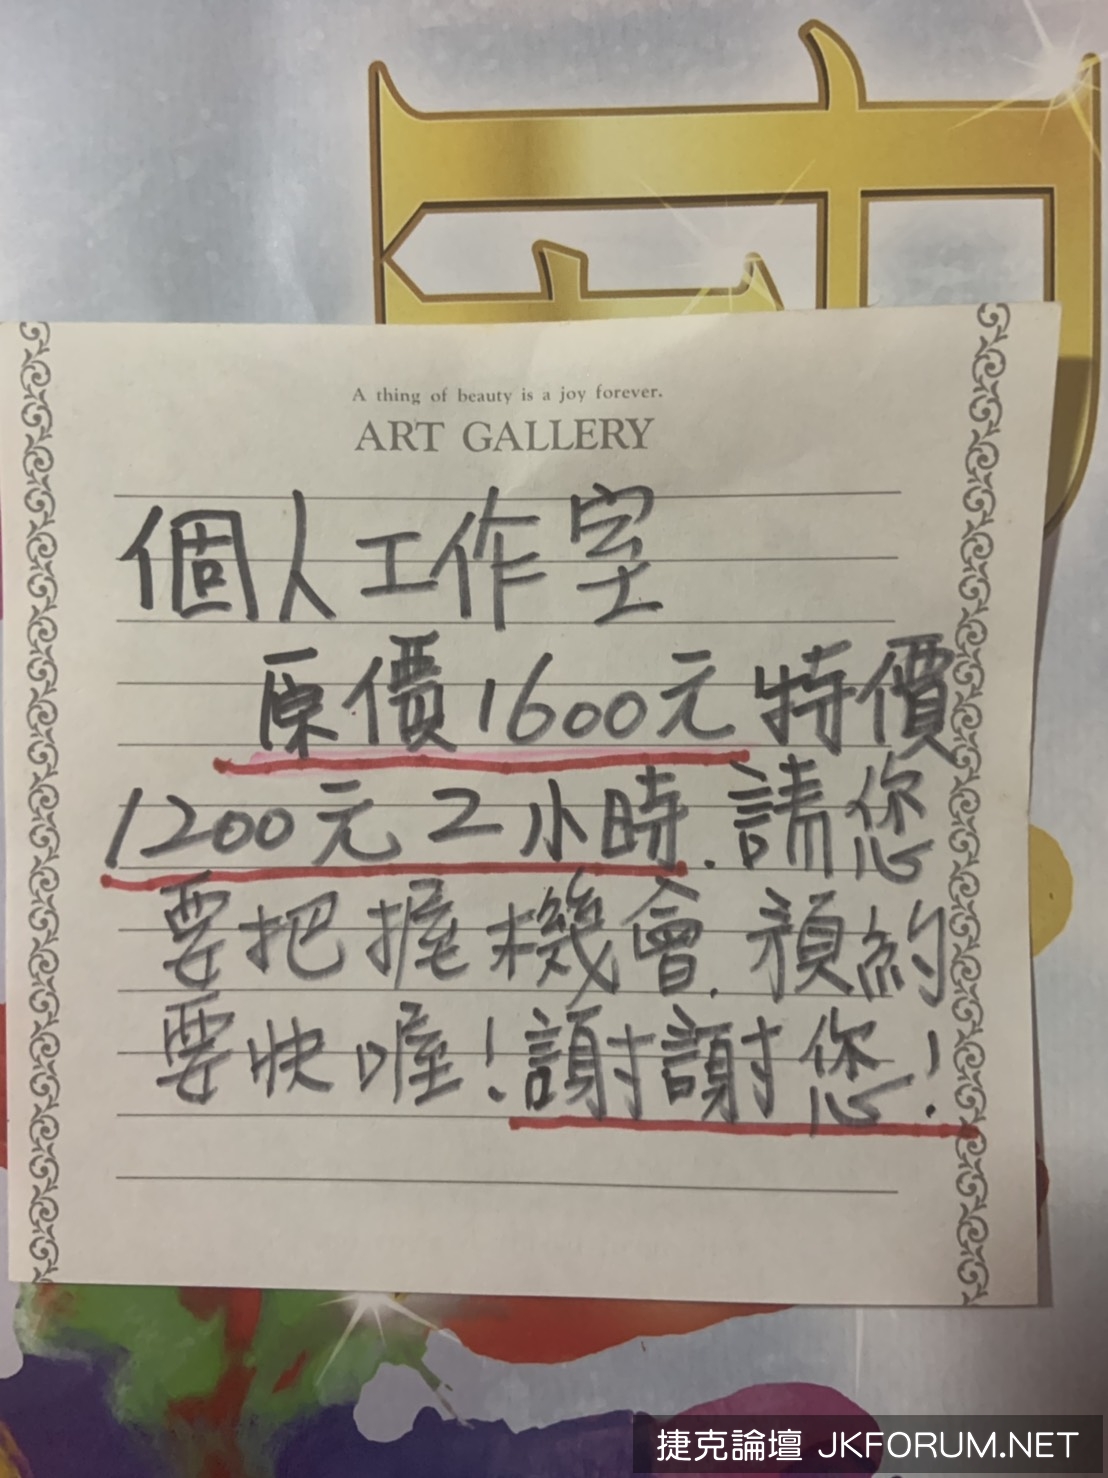 A thing of beauty is a joy forever.
ART GALLERY
個人工作室
原價1600元特價
1200元2小時.請您
要把握機會.預約
要快喔!謝謝您!
捷克論壇 JKFORUM.NET